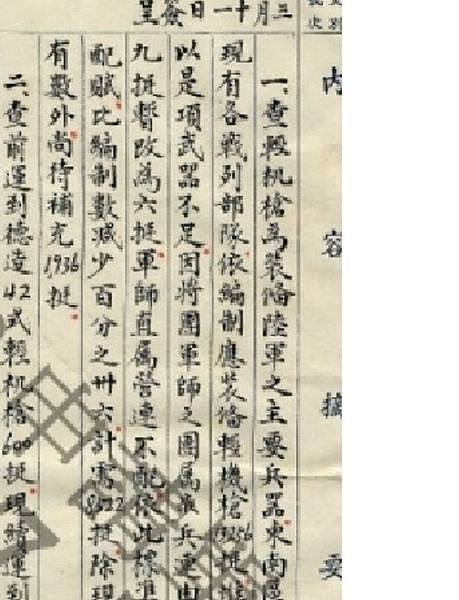 三月十一日簽呈
內容摘要
一、查輕机槍為裝備陸軍之主要兵器東南區
現有各戰列部隊依編制應裝備輕機槍挺惟
以是項武器不足因將團軍師之團屬步兵連由
九挺暫改為六挺軍師直屬營連不配依此標準
配賦比編制數減少百分之卅六計需挺除現
有數外尚待補充1936挺
二、查前運到德造42式輕机槍600挺現續運到